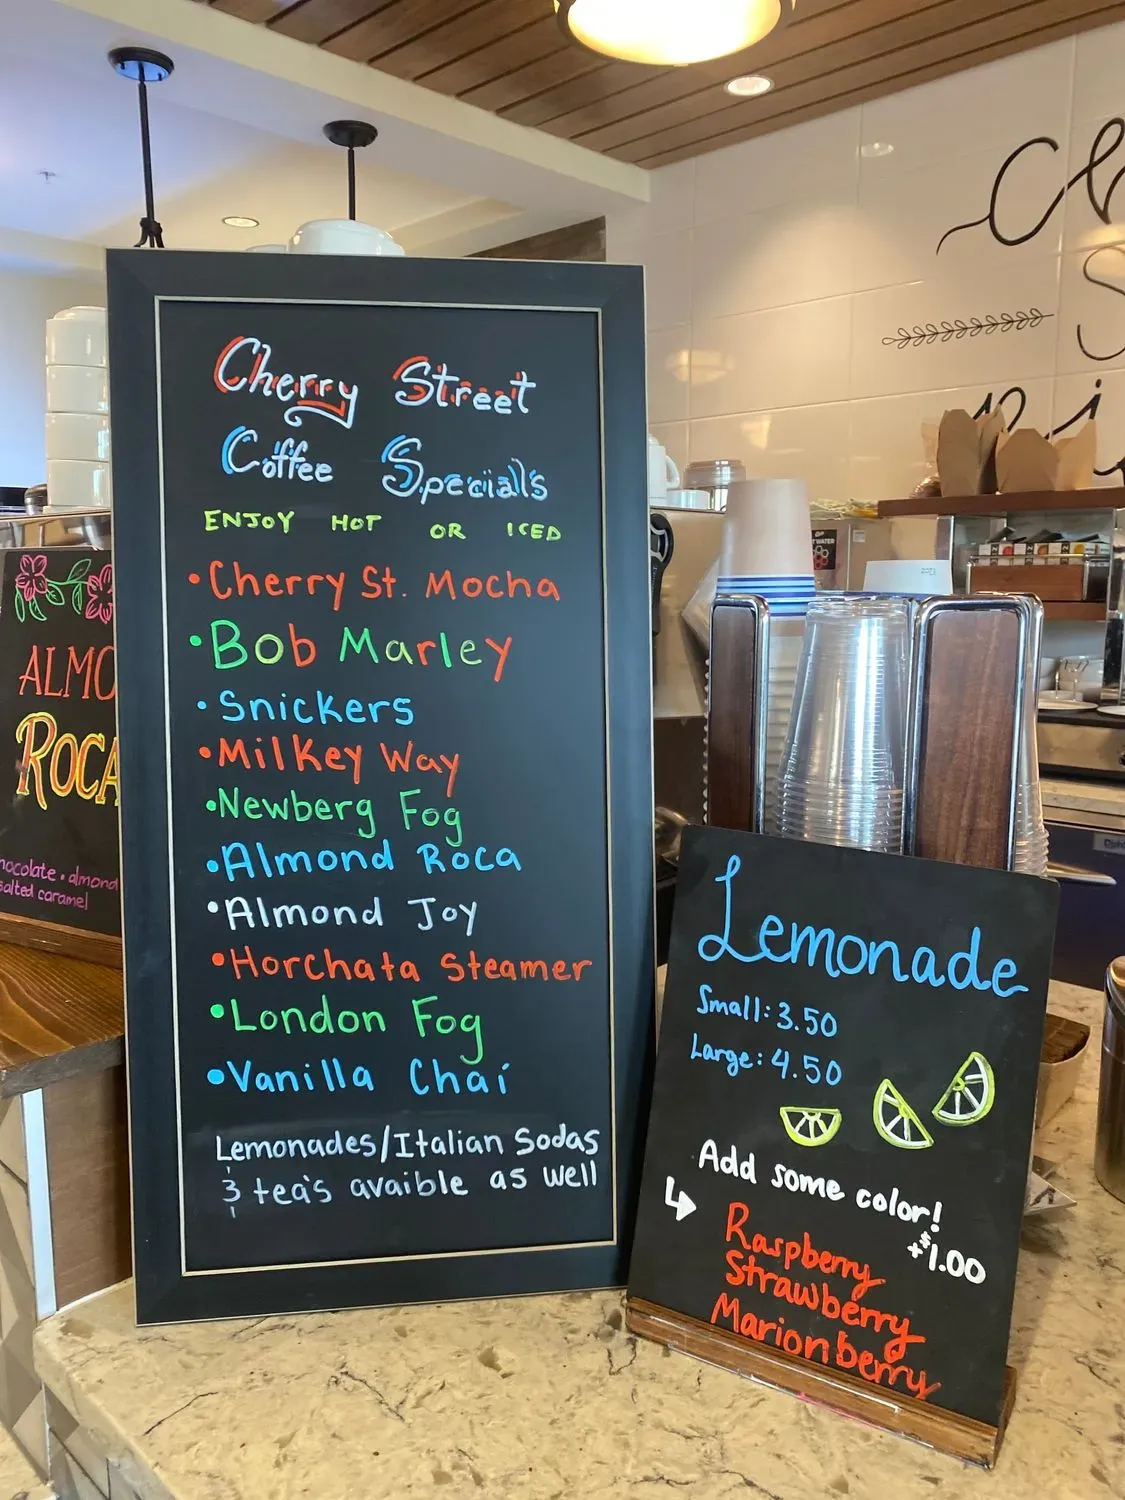 Cherry Street
Coffee Specials
ENJOY HOT OR ICED
• Cherry St. Mocha
• Bob Marley
• Snickers
• Milkey Way
• Newberg Fog
• Almond Roca
• Almond Joy
• Horchata Steamer
• London Fog
• Vanilla Chai
Lemonades/Italian Sodas
& tea's avaible as well
ALMO
ROCA
hocolate • almond
salted caramel
Lemonade
Small: 3.50
Large: 4.50
Add some color!
+$1.00
Raspberry
Strawberry
Marionberry